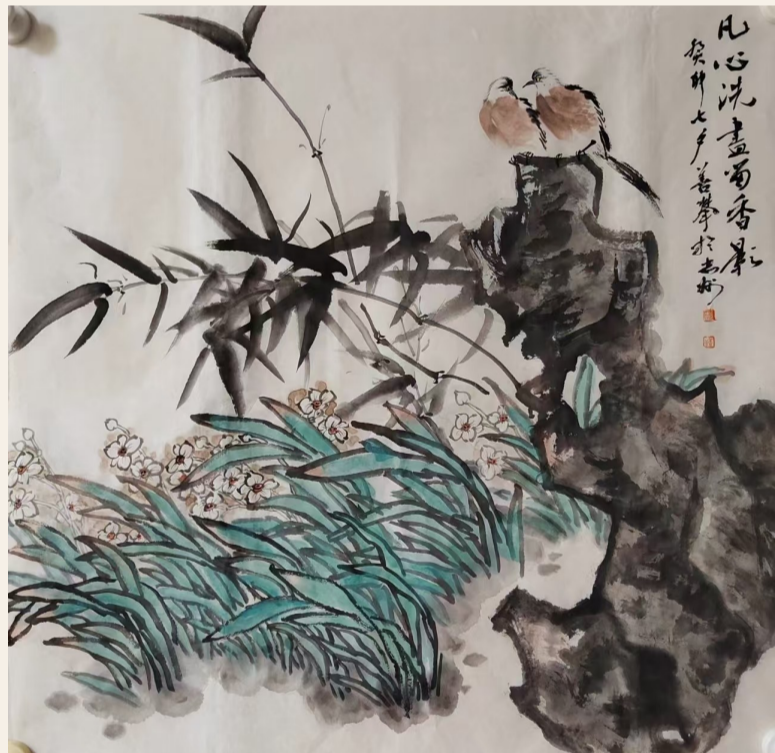 凡心洗盡留香影
癸卯七夕善攀於吉州